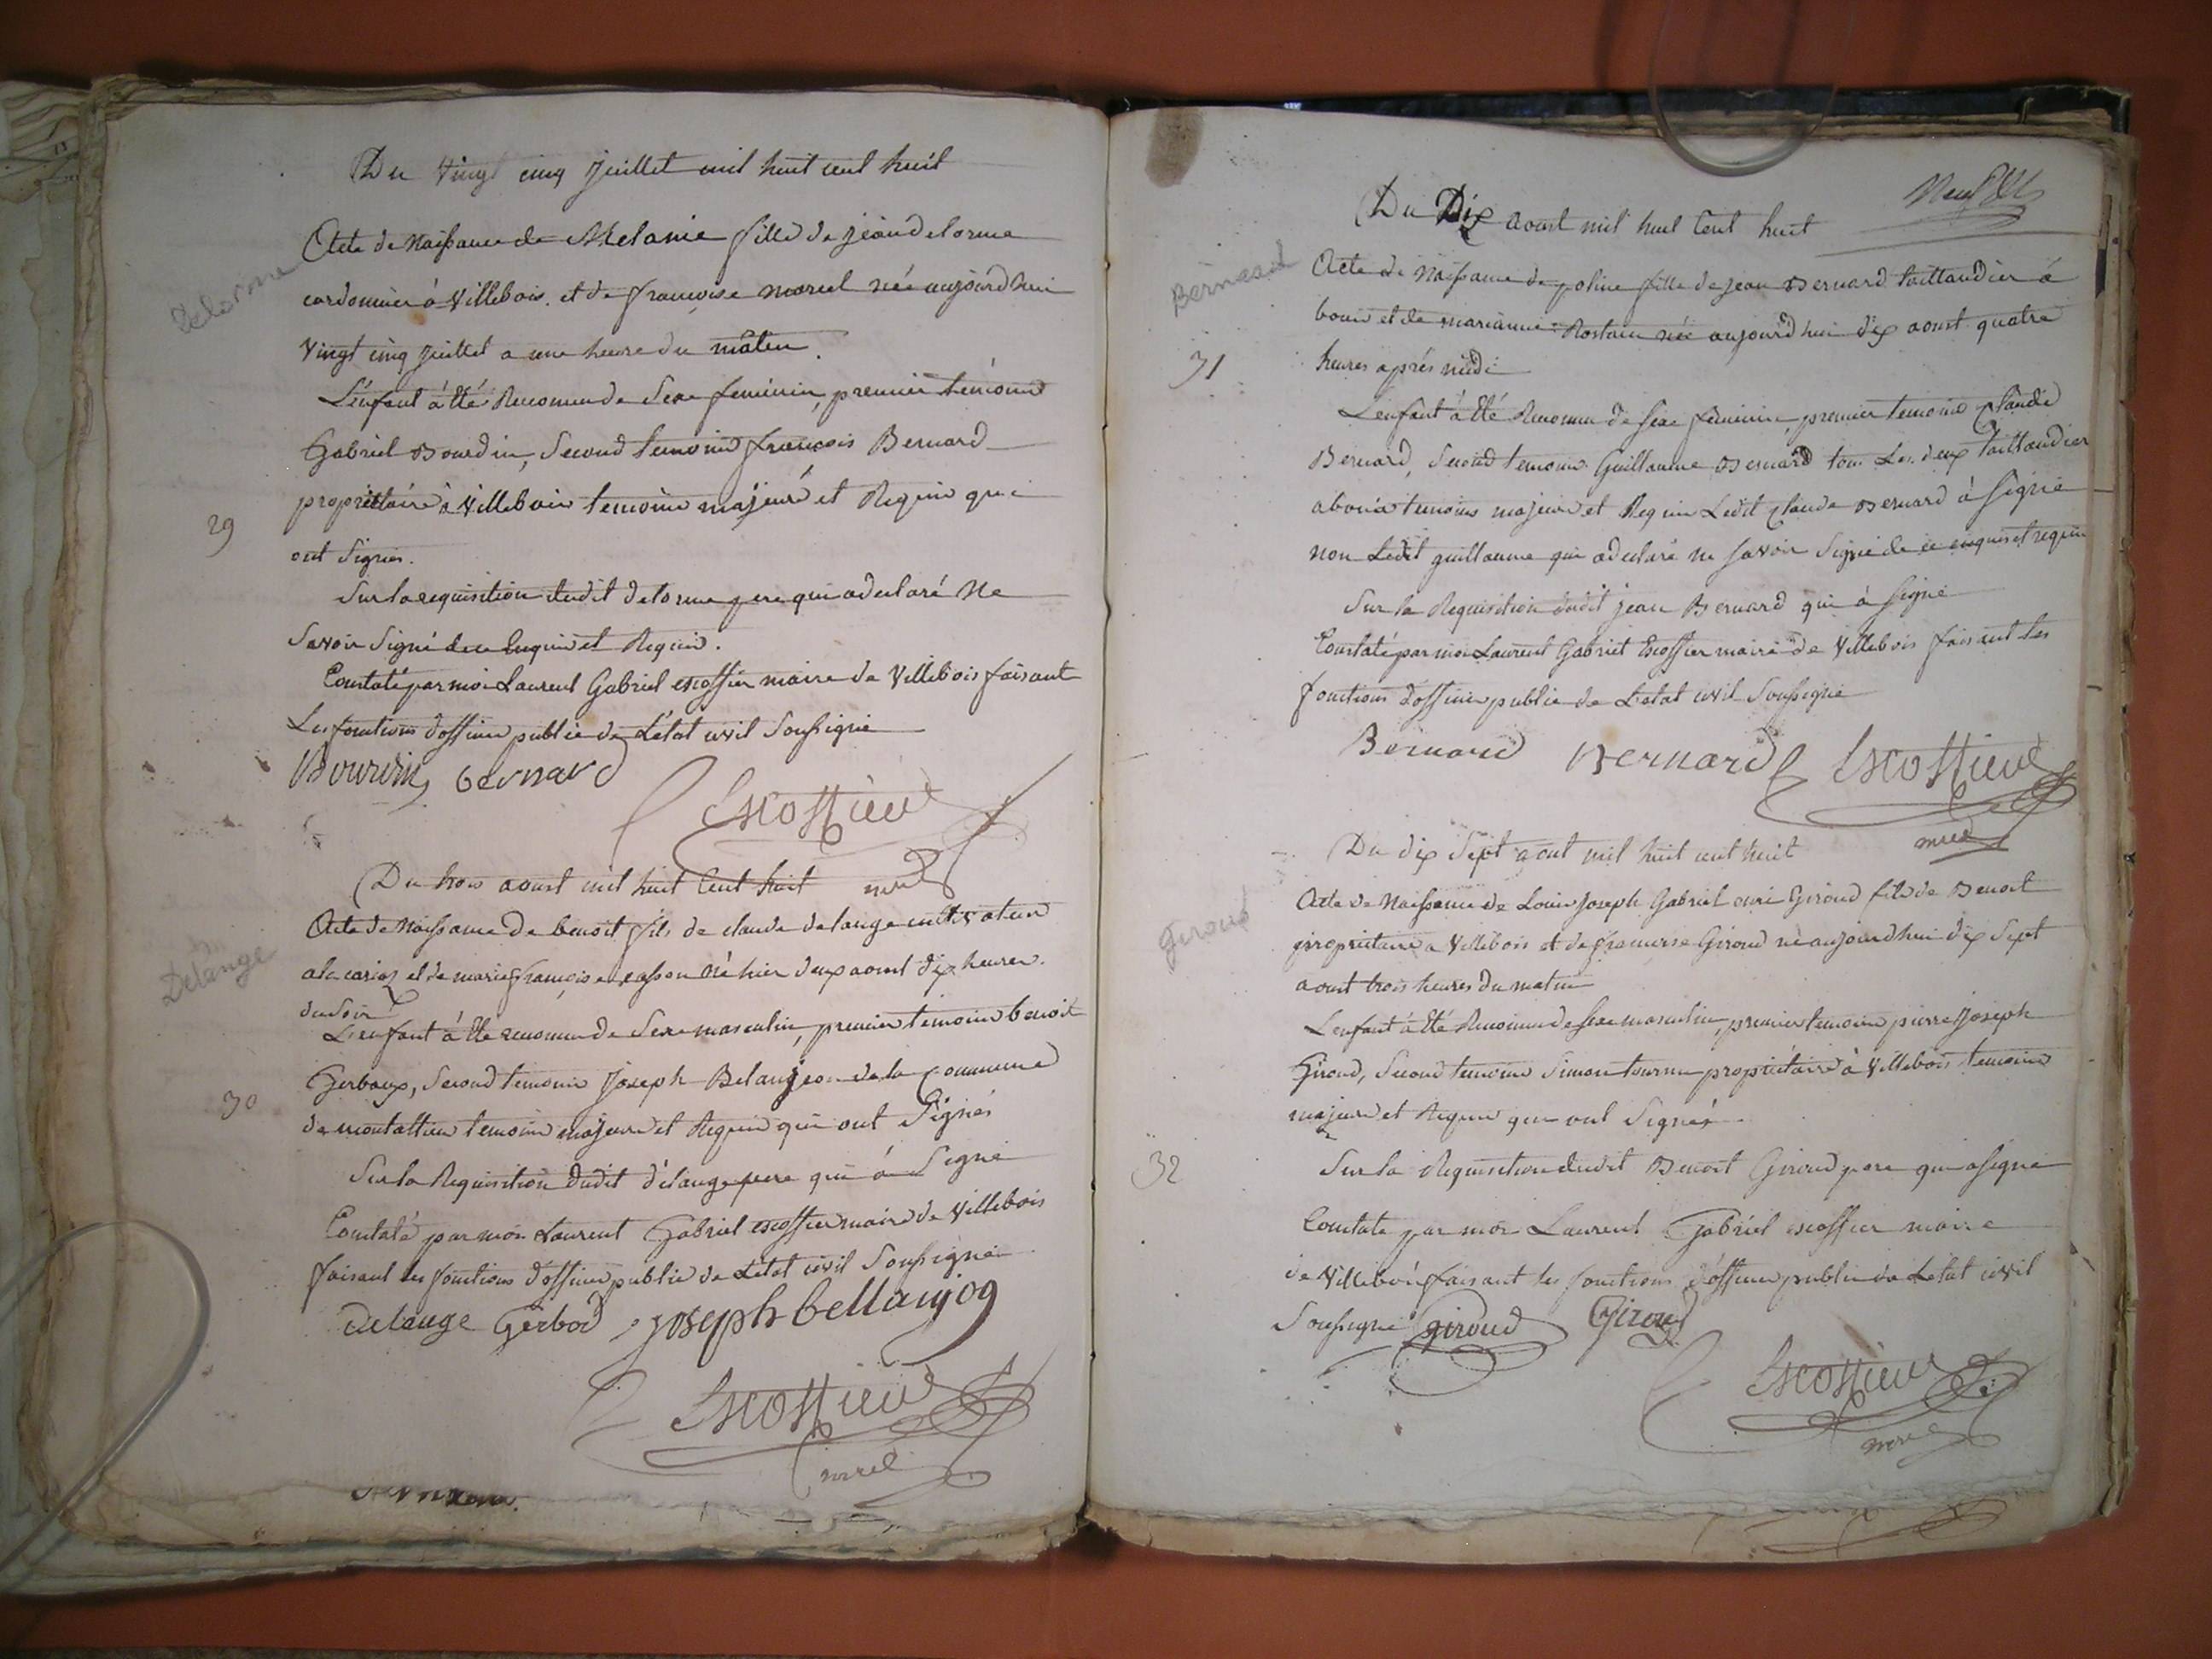 Du Vingt cinq Juillet mil huit cent huit
Delorme
Acte de Naissance de Melanie fille de jean delorme
cordonnier à Villebois et de françoise morel née aujourd'hui
Vingt cinq Juillet a une heure du matin.
L'enfant à été Reconnu de Sexe feminin, premier temoin
Gabriel Bourdin, Second temoin françois Bernard
propriétaire à Villebois temoins majeurs et Requis qui
29
ont Signés.
Sur la requisition dudit delorme pere qui a declaré Ne
Savoir Signé de ce Enquis et Requis.
Constaté par moi Laurent Gabriel escoffier maire de Villebois faisant
Les fonctions d'officier public de L'état civil Soussigné
Bourdin bernard
Escoffier
mre
Du trois aoust mil huit Cent huit
Delange
Acte de Naissance de benoit fils de claude delange cultivateur
a la et de marie françoise né hier deux aoust dix heures
du Soir
L'enfant à été reconnu de Sexe masculin, premier temoin benoit
Gerbaux, Second temoin Joseph Belanjeon de la Commune
30
de montaltieu temoins majeurs et Requis qui ont Signés
Sur la Requisition dudit délange pere qui à Signé
Constaté par moi Laurent Gabriel escoffier maire de Villebois
faisant les fonctions d'officier public de Létat civil Soussigné
delange Gerbod joseph bellanjon
Escoffier
mre
Neuf
Du Dix aoust mil huit Cent huit
Bernard
Acte de Naissance de poline fille de jean Bernard taillandier à
bouis et de marianne Rostain née aujourd'hui dix aoust quatre
31
heures aprés midi
L'enfant à été Reconnu de Sexe feminin, premier temoin Claude
Bernard, Second temoin Guillaume Bernard tous Les deux taillandier
a bouis temoins majeurs et Requis Ledit Claude Bernard à Signé
non Ledit guillaume qui a declaré ne Savoir Signé de ce enquis et requis
Sur la Requisition dudit jean Bernard qui à Signé
Constaté par moi Laurent Gabriel Escoffier maire de Villebois faisant les
fonctions d'officier public de L'état civil Soussigné
Bernard Bernard Escoffier
mre
Du dix Sept aout mil huit cent huit
Giroud
Acte de Naissance de Louis Joseph Gabriel Giroud fils de Benoit
propriétaire a Villebois et de françoise Giroud né aujourdhui dix Sept
aoust trois heures du matin
L'enfant à été Reconnu de Sexe masculin, premier temoin pierre Joseph
Giroud, Second temoin Simon tournu propriétaire à Villebois temoins
majeurs et Requis qui ont Signés
32
Sur la Requisition dudit Benoit Giroud pere qui a Signé
Constaté par moi Laurent Gabriel escoffier maire
de Villebois faisant les fonctions d'officier public de L'état civil
Soussigné Giroud Giroud
Escoffier
mre